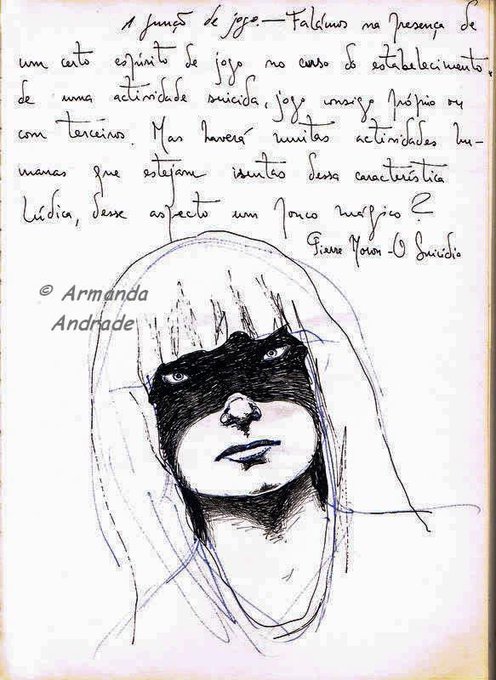 A função de jogo. — Falámos na presença de
um certo espírito de jogo no curso do estabelecimento
de uma actividade suicida, jogo consigo próprio ou
com terceiros. Mas haverá muitas actividades hu-
manas que estejam isentas dessa característica
lúdica, desse aspecto um pouco mágico?
Pierre Moron - O Suicídio
© Armanda
Andrade